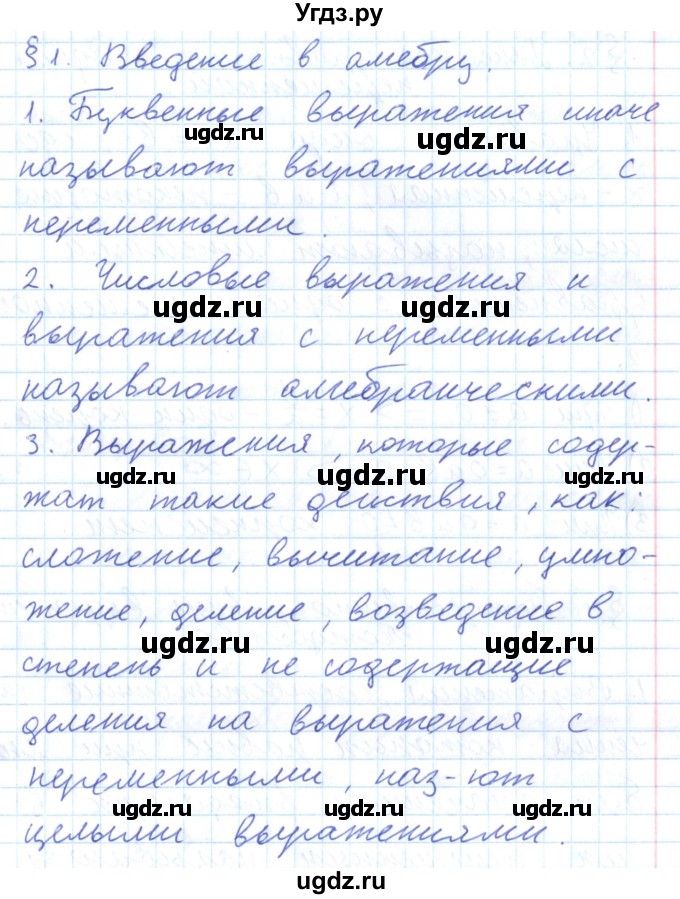 Угдз.ру
§ 1. Введение в алгебру.
1. Буквенные выражения иначе
ugdz.ru ugdz.ru
называют выражениями с
переменными.
2. Числовые выражения и
ugdz.ru ugdz.ru
выражения с переменными
называют алгебраическими.
3. Выражения, которые содер-
ugdz.ru ugdz.ru ugdz.ru
жат такие действия, как:
сложение, вычитание, умно-
жение, деление, возведение в
ugdz.ru ugdz.ru
степень и не содержащие
деления на выражения с
переменными, наз-ют
ugdz.ru ugdz.ru ugdz.ru
целыми выражениями.
ugdz.ru